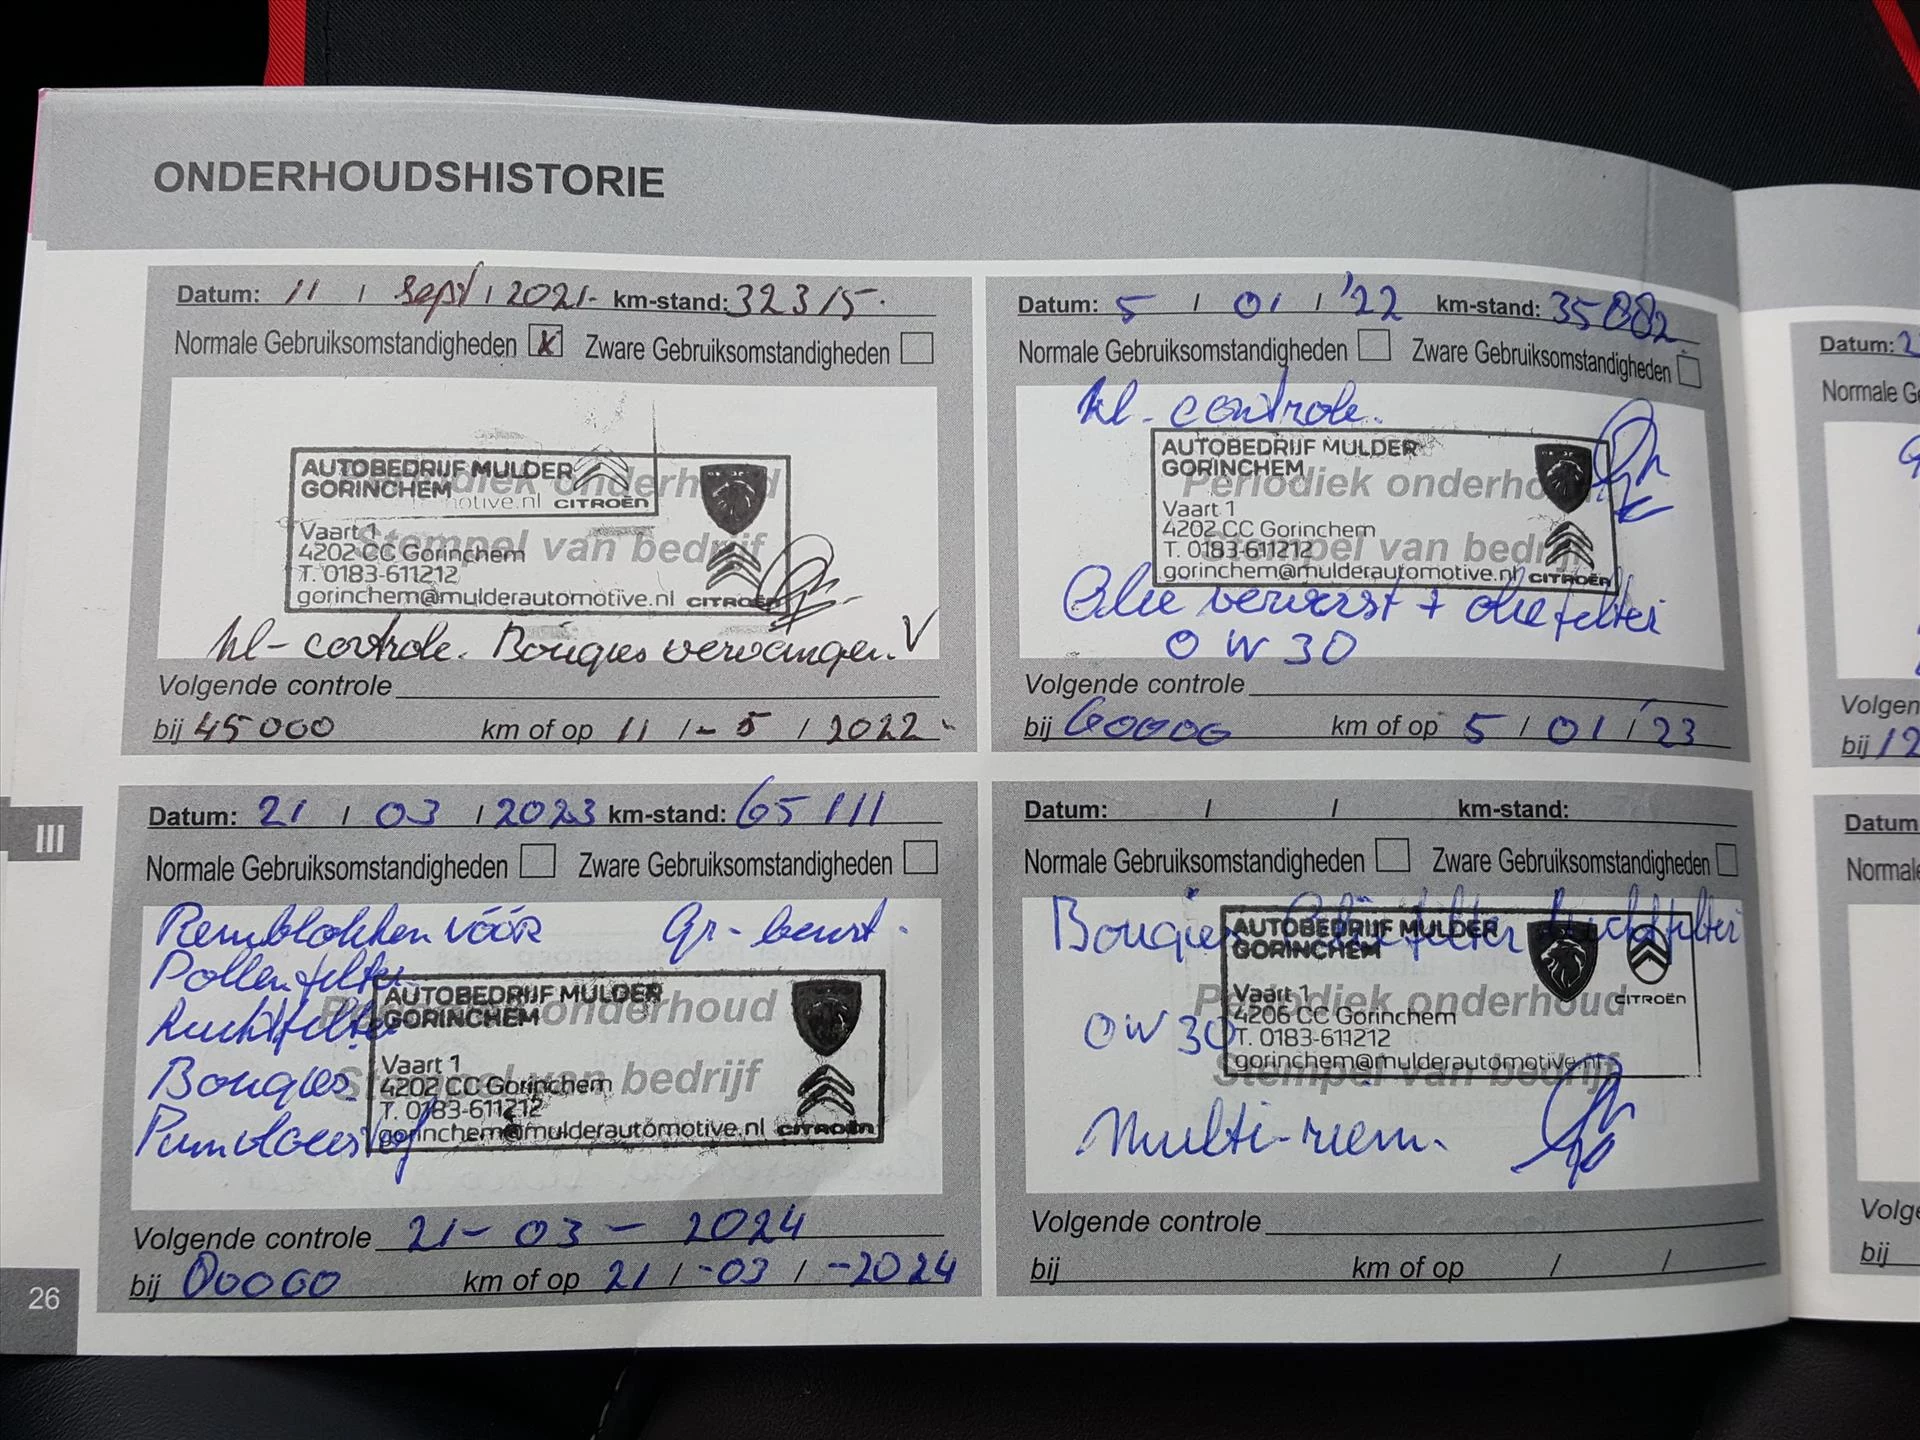 ONDERHOUDSHISTORIE
Datum: 11 / Sept / 2021- km-stand: 32315.
Normale Gebruiksomstandigheden x Zware Gebruiksomstandigheden
AUTOBEDRIJF MULDER
GORINCHEM
Periodiek onderhoud
otive.nl CITROËN
Vaart 1
Stempel van bedrijf
4202 CC Gorinchem
T. 0183-611212
gorinchem@mulderautomotive.nl CITROËN
kl-controle. Bougies vervangen. V
Volgende controle
bij 45000 km of op 11 / - 5 / 2022-
Datum: 5 / 01 / '22 km-stand:
Normale Gebruiksomstandigheden Zware Gebruiksomstandigheden
kl-controle.
AUTOBEDRIJF MULDER
GORINCHEM
Periodiek onderhoud
Vaart 1
4202 CC Gorinchem
Stempel van bedrijf
T. 0183-611212
gorinchem@mulderautomotive.nl CITROËN
Olie ververst + oliefilter
0 W 30
Volgende controle
bij 60000 km of op 5 / 01 / '23
Datum: 21 / 03 / 2023 km-stand: 65111
Normale Gebruiksomstandigheden Zware Gebruiksomstandigheden
Remblokken vóór Gr-beurt.
Pollenfilter
AUTOBEDRIJF MULDER
GORINCHEM
Periodiek onderhoud
Luchtfilter
Vaart 1
Bougies.
Stempel van bedrijf
4202 CC Gorinchem
T. 0183-611212
gorinchem@mulderautomotive.nl CITROËN
Remvloeistof
Volgende controle 21-03-2024
bij km of op 21 / -03 / -2024
Datum: / / km-stand:
Normale Gebruiksomstandigheden Zware Gebruiksomstandigheden
Bougies Oliefilter Luchtfilter
AUTOBEDRIJF MULDER
GORINCHEM
CITROËN
Vaart 1
Periodiek onderhoud
4206 CC Gorinchem
0W30
T. 0183-611212
gorinchem@mulderautomotive.nl
Stempel van bedrijf
Multi-riem.
Volgende controle
bij km of op / /
III
26
Datum: 2
Normale Ge
Volgen
bij 12
Datum
Normale
Volge
bij